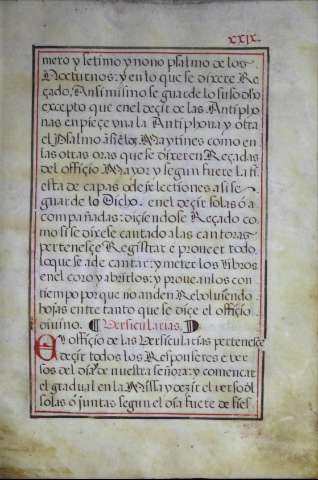 xxix.
mero y setimo y nono psalmo de los
Nocturnos: y en lo que se dixere Re
çado. Ansimismo se guarde lo suso dicho
excepto que en el deçir de las Antipho
nas enpieçe vna la Antiphona y otra
el Psalmo ansi en los Maytines como en
las otras oras que se dixeren Reçadas
del offiçio Mayor y segun fuere la fi
esta de capas o de sie lectiones asi se
guarde lo Dicho. en el deçir solas ó a
compañadas: diçiendose Reçado co
mo si se dixese cantado a las cantoras
pertenesçe Registrar e proueer todo
lo que se a de cantar: y meter los libros
en el coro y abrirlos: y proueanlos con
tiempo por que no anden Reboluiendo
hojas entre tanto que se diçe el offiçio
diuino. Versicularias.
El offiçio de las Versicularias pertenesçe
deçir todos los Responseres e ver
sos del dia, de nuestra señora: y començar
el gradual en la Missa y dezir el verso
solas ó juntas segun el dia fuere de fies